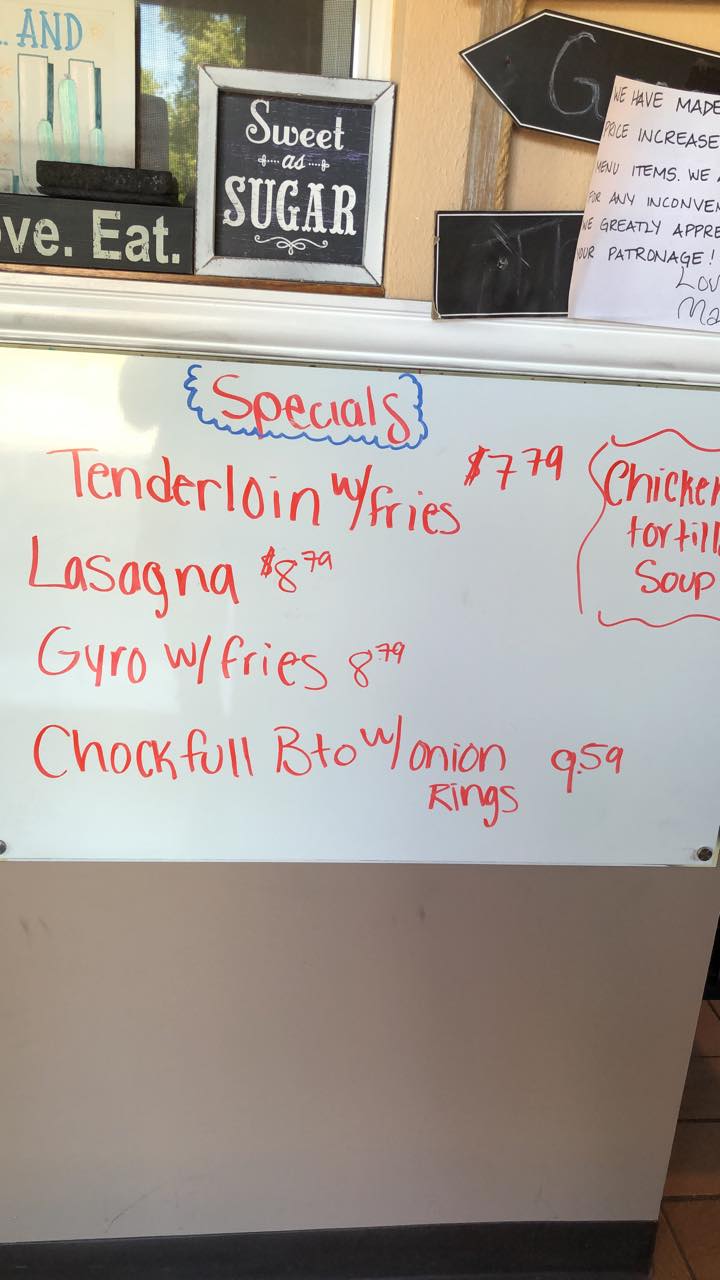 AND
Sweet
as
SUGAR
Eat.
WE HAVE MADE
PRICE INCREASE
MENU ITEMS. WE
FOR ANY
WE GREATLY
YOUR PATRONAGE!
Specials
Tenderloin w/fries $7.79
Lasagna $8.79
Gyro w/fries 8.79
Chockfull Bto w/onion 9.59
Rings
Chicken
tortill
Soup